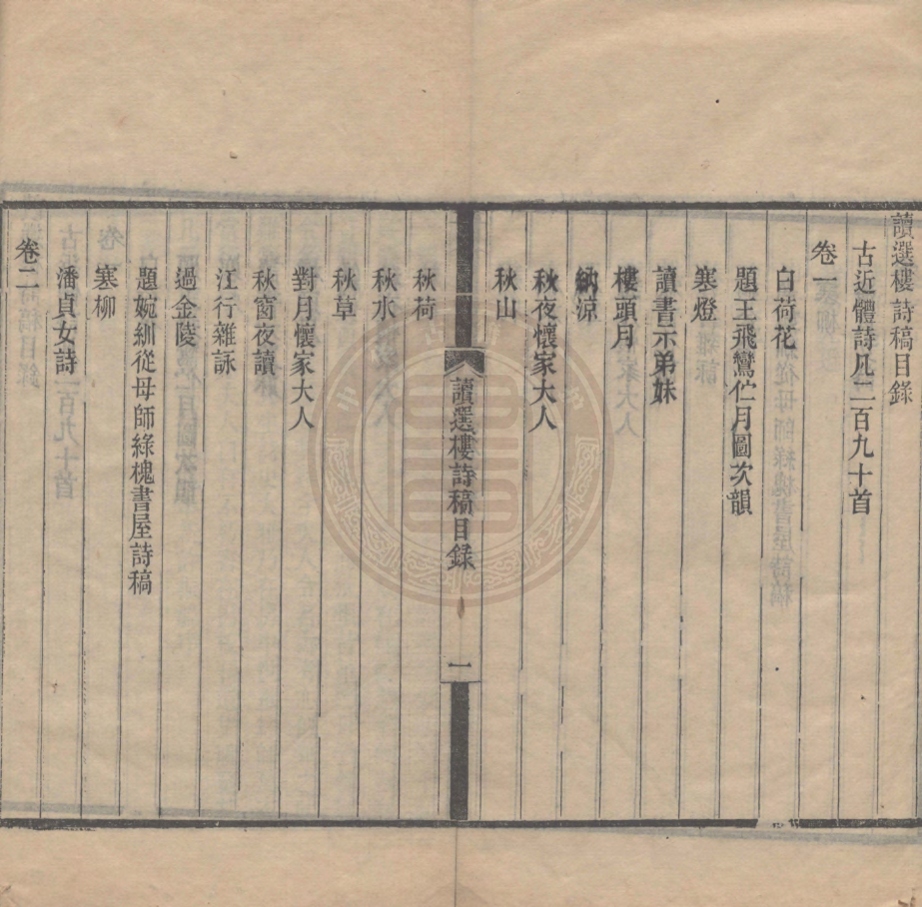 讀選樓詩稿目錄
古近體詩凡二百九十首
卷一
白荷花
題王飛鸞伫月圖次韻
寒燈
讀書示弟妹
樓頭月
納涼
秋夜懷家大人
秋山
讀選樓詩稿目錄
一
秋荷
秋水
秋草
對月懷家大人
秋窗夜讀
江行雜詠
過金陵
題婉紃從母師綠槐書屋詩稿
寒柳
潘貞女詩
卷二